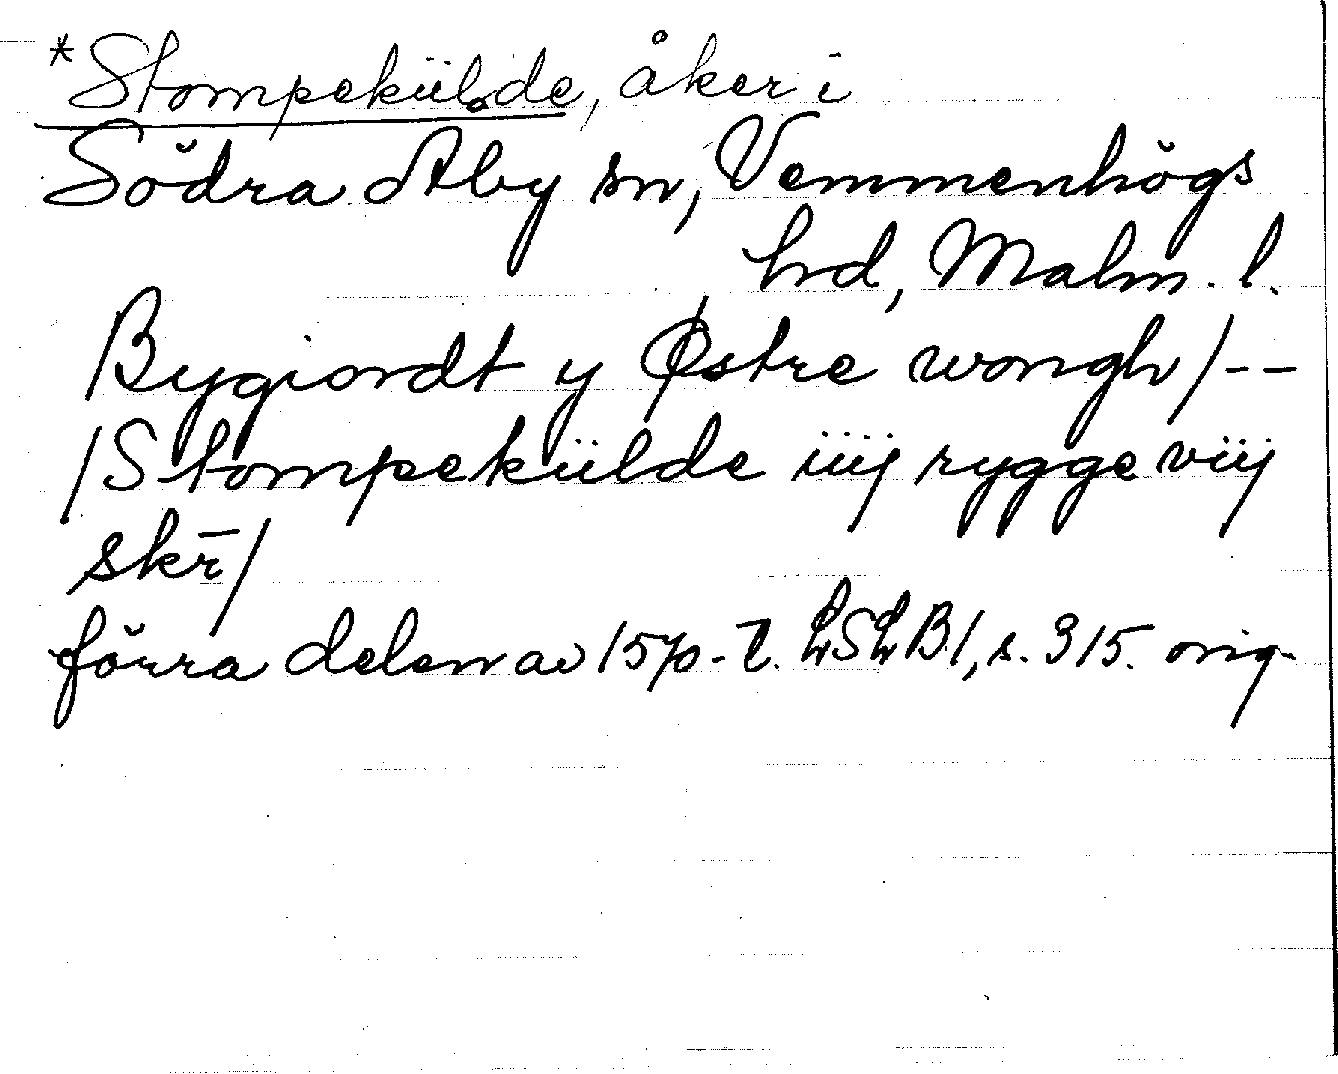 *Stompekülde, åker i
Södra Åby sn, Vemmenhögs
hd, Malm. l.
Bygiordt y Østre wongh/--
/Stompekülde iiij rygge viij
skr̄/
förra delen av 1570-t. LSLB1, s. 315. orig.